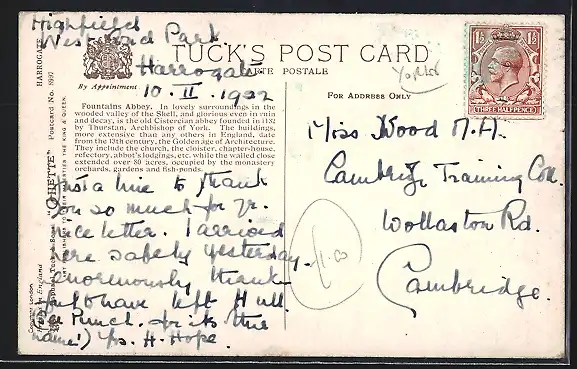 Highfield
West End Park
Harrogate
10. II. 1932
TUCK'S POST CARD
CARTE POSTALE
By Appointment
FOR ADDRESS ONLY
York
THREE HALFPENCE
Fountains Abbey. In lovely surroundings in the
wooded valley of the Skell, and glorious even in ruin
and decay, is the old Cistercian abbey founded in 1132
by Thurstan, Archbishop of York. The buildings,
more extensive than any others in England, date
from the 13th century, the Golden age of Architecture.
They include the church, the cloister, chapter-house,
refectory, abbot's lodgings, etc. while the walled close
extended over 80 acres, occupied by the monastery
orchards, gardens and fish-ponds.
Just a line to thank
you so much for yr.
nice letter. I arrived
here safely yesterday.
Enormously thank-
ful to have left Hull.
(see Punch. for its true
name!) Yrs. H. Hope.
Miss Wood M.A.
Cambridge Training Coll.
Wollaston Rd.
Cambridge.
HARROGATE
Postcard No. 8997
"OILETTE"